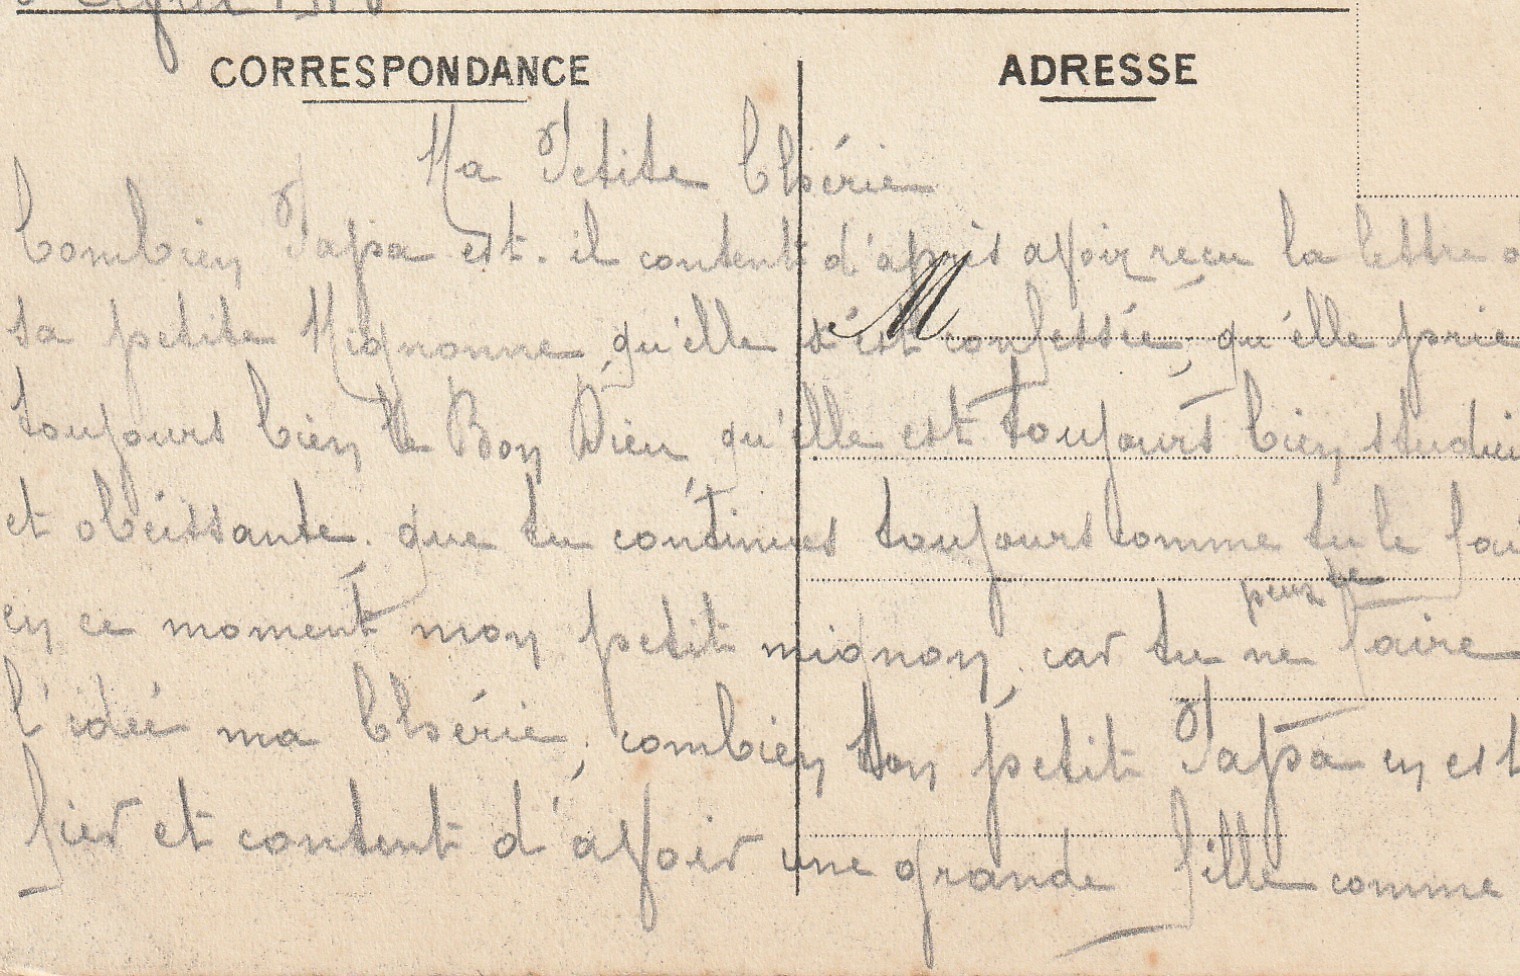 CORRESPONDANCE
ADRESSE
Ma Petite Chérie
Combien Papa est-il content d'après avoir reçu la lettre d
sa petite Mignonne, qu'elle s'est confessée, qu'elle prie
M
toujours bien le Bon Dieu, qu'elle est toujours bien studieu
et obéissante. que tu continues toujours comme tu le fai
en ce moment mon petit mignon, car tu ne peux te faire
l'idée ma Chérie, combien ton petit Papa en est
fier et content d'avoir une grande fille comme